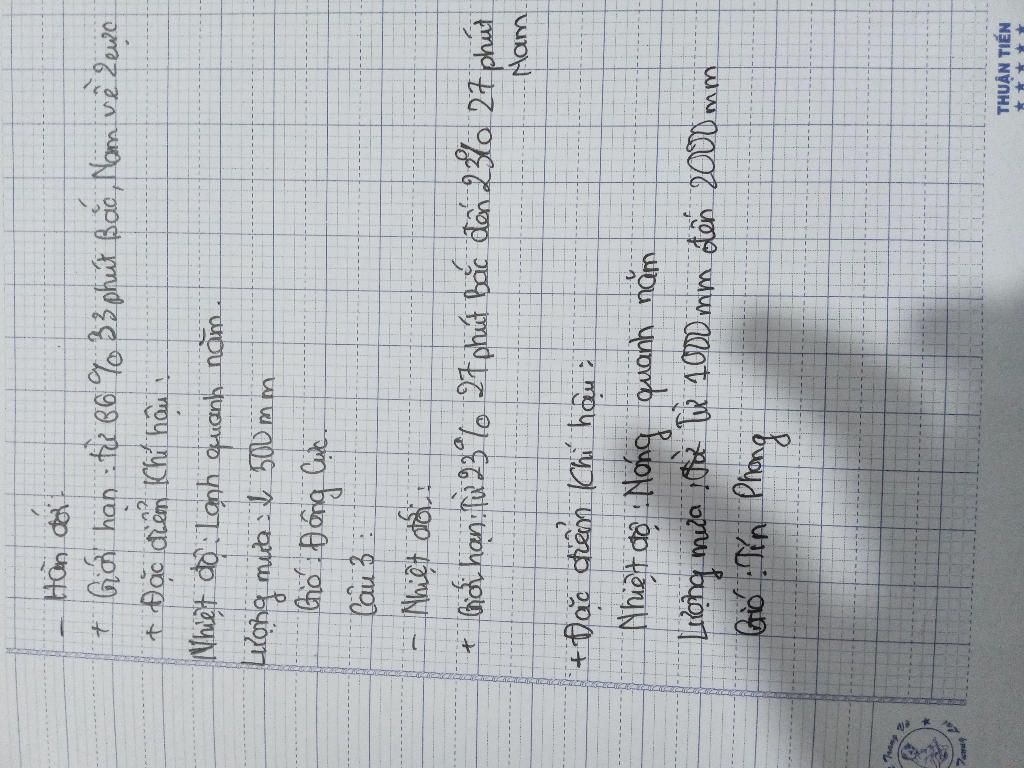 - Hàn đới:
+ Giới hạn: từ 66% 33 phút Bắc, Nam về 2 cực
+ Đặc điểm Khí hậu:
Nhiệt độ: Lạnh quanh năm.
Lượng mưa: < 500mm
Gió: Đông Cực.
Câu 3:
- Nhiệt đới:
+ Giới hạn: Từ 23% 27 phút Bắc đến 23% 27 phút
Nam
+ Đặc điểm Khí hậu:
Nhiệt độ: Nóng quanh năm
Lượng mưa: Từ 1000mm đến 20000mm
Gió: Tín Phong
THUẬN TIẾN